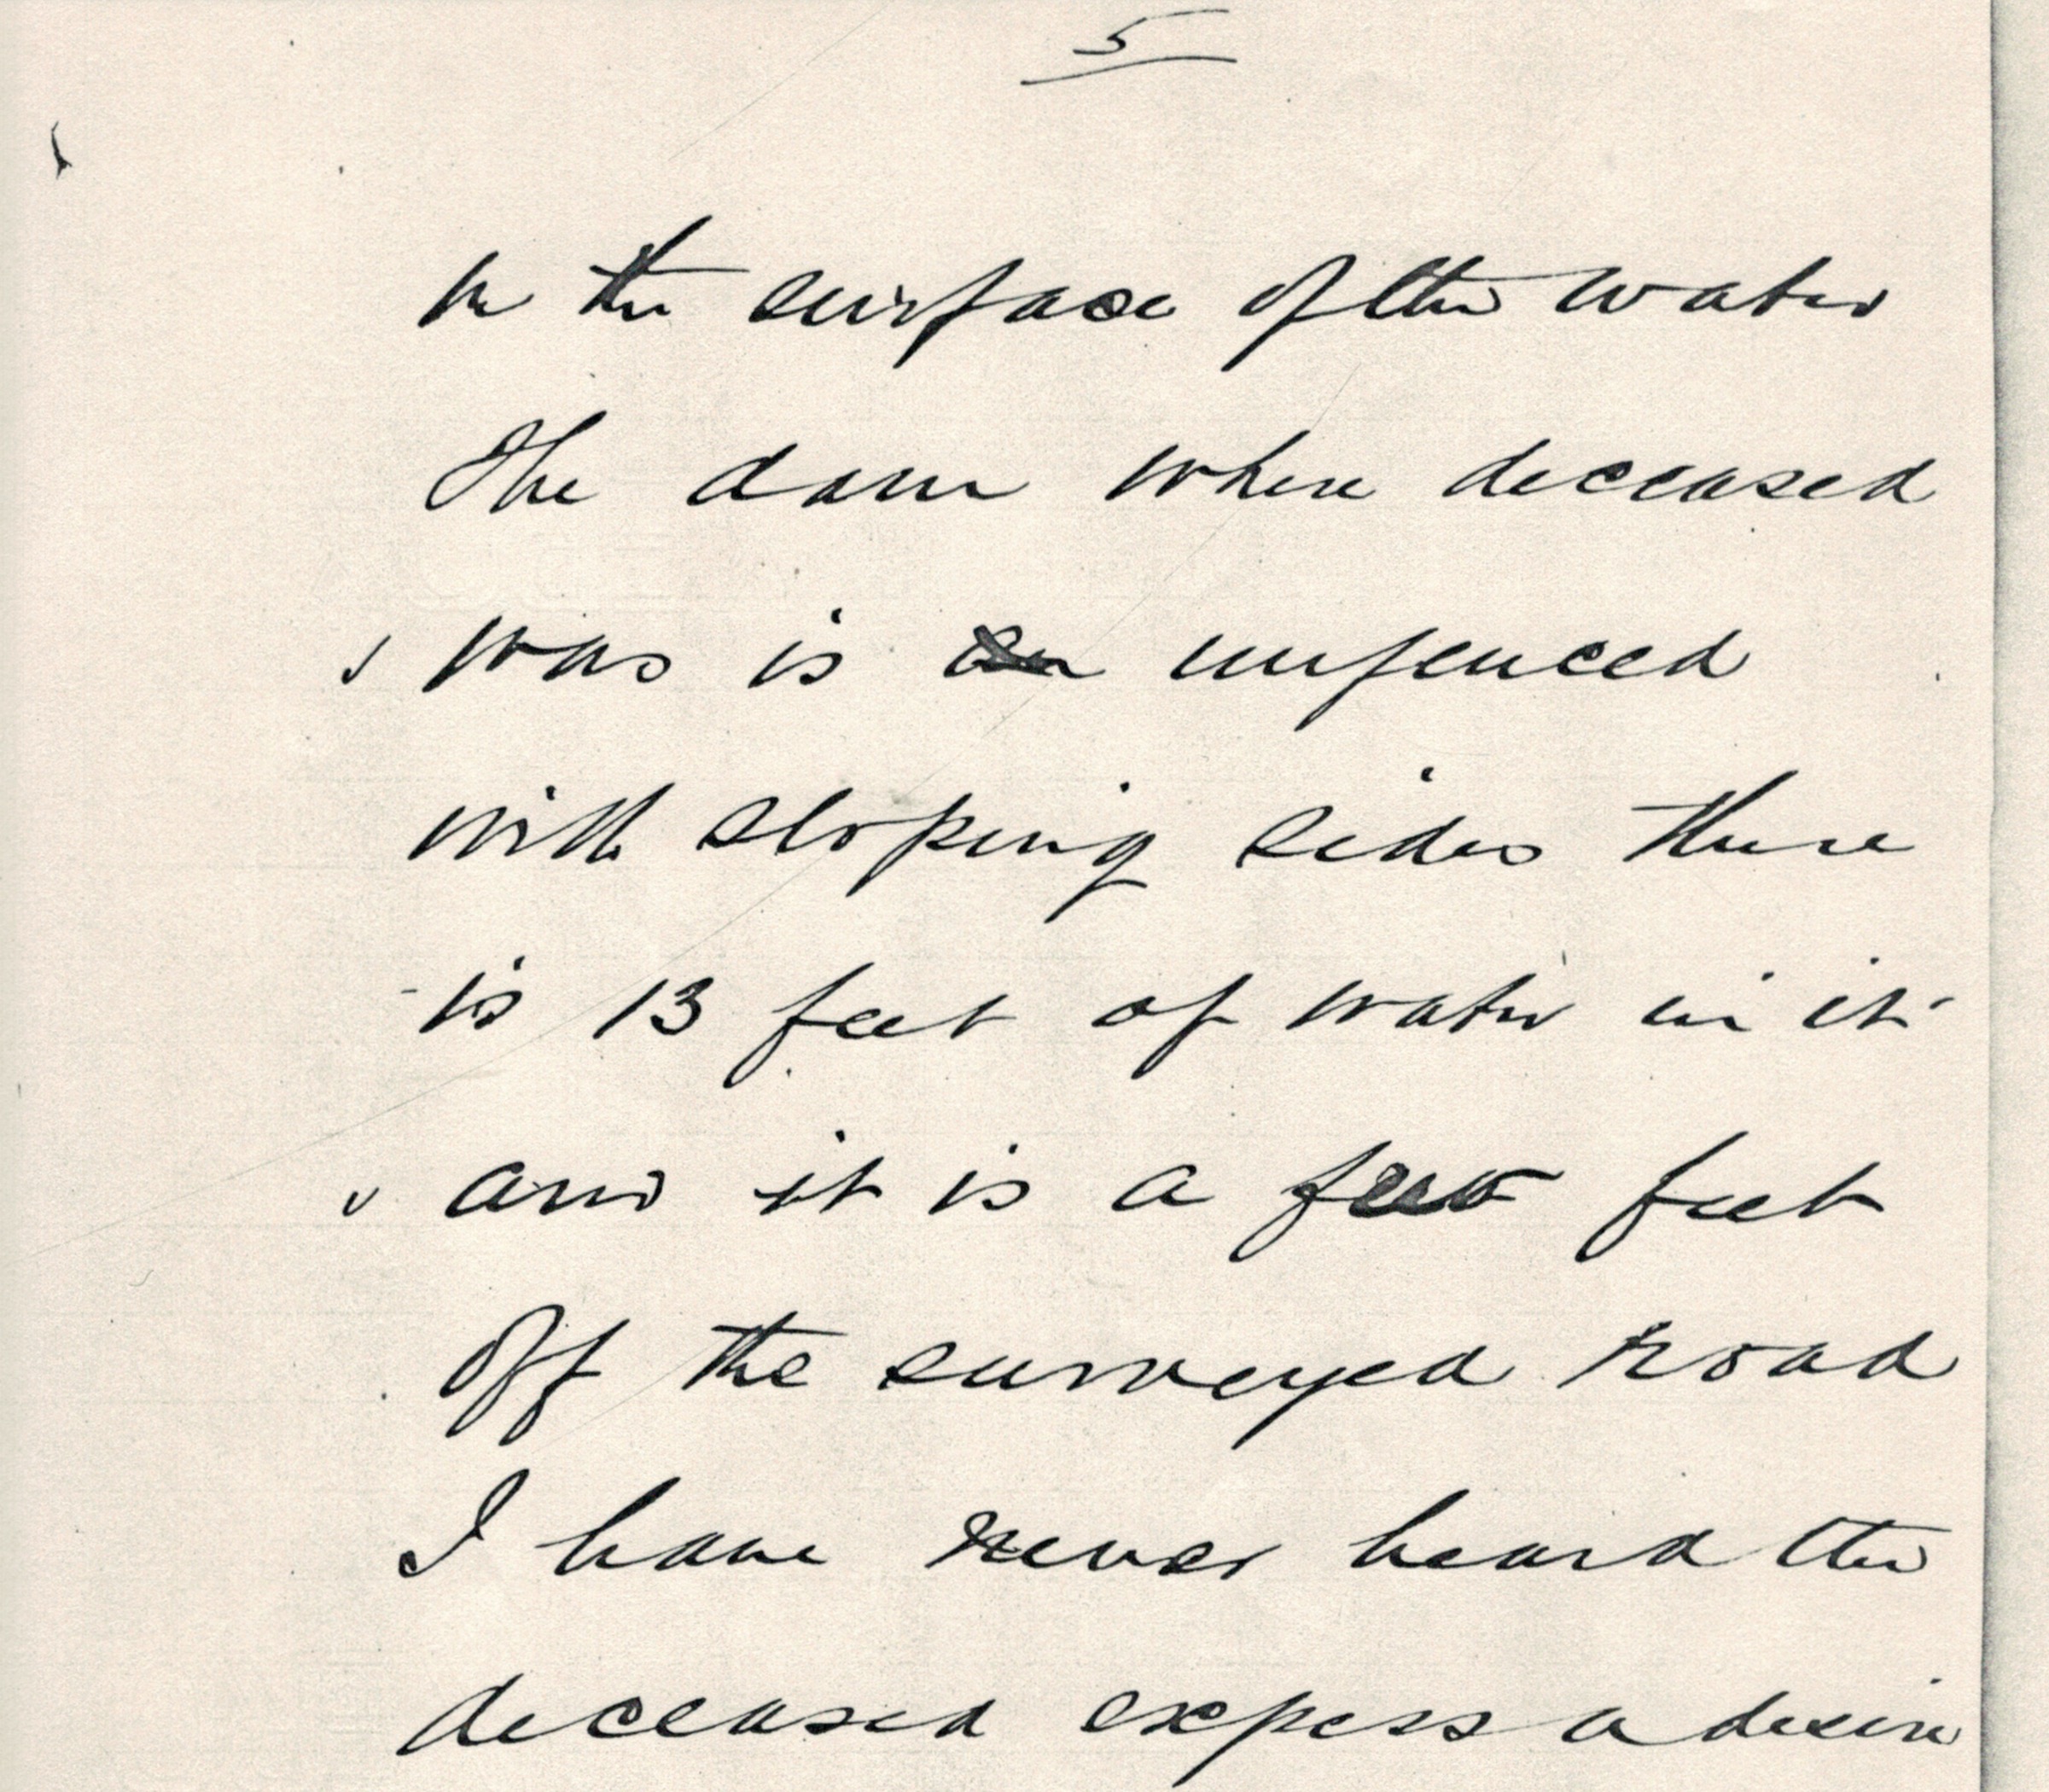 5
to the surface of the water
The dam where deceased
was is unfenced
with sloping sides there
is 13 feet of water in it
and it is a few feet
off the surveyed road
I have never heard the
deceased expess a desire